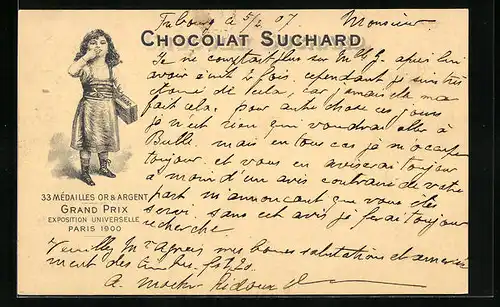 Fribourg à 5/2 07. Monsieur
CHOCOLAT SUCHARD
Je ne comptait plus sur M. G. après lui
avoir écrit 2 fois. cependant je suis très
étonné de cela, car jamais elle m'a
fait cela. pour autre chose ces jours
je n'est rien qui voudrai aller à
Bulle. mais en tous cas je m'ocupe
toujour. et vous en aviserai toujour
à moin d'un avis contraire de votre
part m'annonçant que vous êtes
servi. sans cet avis je ferai toujour
recherche.
33 MÉDAILLES OR & ARGENT
GRAND PRIX
EXPOSITION UNIVERSELLE
PARIS 1900
Veuillez Mr Agréer mes bonnes salutations et
ment des timbres
A.